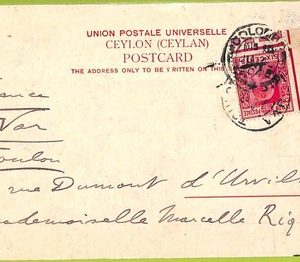 UNION POSTALE UNIVERSELLE
CEYLON (CEYLAN)
POSTCARD
THE ADDRESS ONLY TO BE WRITTEN ON THIS
Var
Toulon
rue Dumont d'Urvill
ademoiselle Marcelle Riq